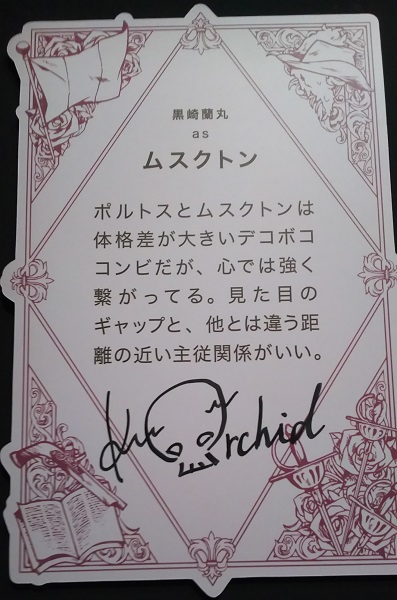 黒崎蘭丸
as
ムスクトン
ポルトスとムスクトンは
体格差が大きいデコボコ
コンビだが、心では強く
繋がってる。見た目の
ギャップと、他とは違う距
離の近い主従関係がいい。